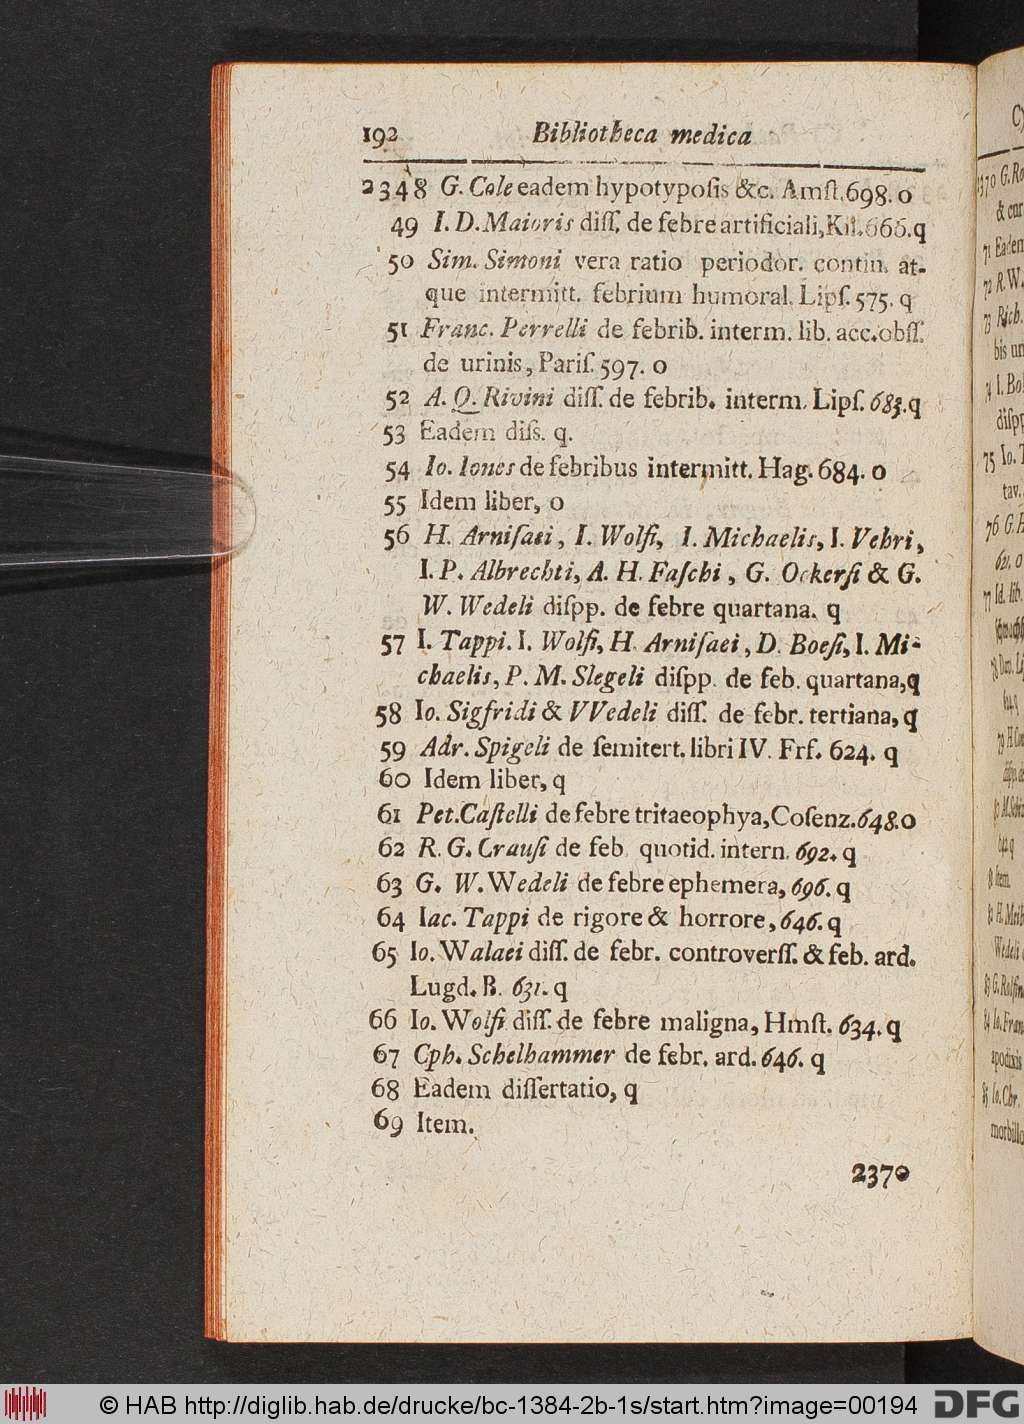 192 Bibliotheca medica
2348 G. Cole eadem hypotyposis &c. Amſt. 698. o
49 I. D. Maioris diſſ. de febre artificiali, Kil. 666. q
50 Sim. Simoni vera ratio periodor. contin. at-
que intermitt. febrium humoral. Lipſ. 575. q
51 Franc. Perrelli de febrib. interm. lib. acc. obſſ.
de urinis, Pariſ. 597. o
52 A. Q. Rivini diſſ. de febrib. interm. Lipſ. 683. q
53 Eadem diſs. q.
54 Io. Iones de febribus intermitt. Hag. 684. o
55 Idem liber, o
56 H. Arniſaei, I. Wolfi, I. Michaelis, I. Vehri,
I. P. Albrechti, A. H. Faſchi, G. Ockerſi & G.
W. Wedeli diſpp. de febre quartana. q
57 I. Tappi. I. Wolfi, H. Arniſaei, D. Boeſi, I. Mi-
chaelis, P. M. Slegeli diſpp. de feb. quartana, q
58 Io. Sigfridi & VVedeli diſſ. de febr. tertiana, q
59 Adr. Spigeli de ſemitert. libri IV. Frf. 624. q
60 Idem liber, q
61 Pet. Caſtelli de febre tritaeophya, Coſenz. 648. o
62 R. G. Crauſi de feb. quotid. intern. 692. q
63 G. W. Wedeli de febre ephemera, 696. q
64 Iac. Tappi de rigore & horrore, 646. q
65 Io. Walaei diſſ. de febr. controverſſ. & feb. ard.
Lugd. B. 631. q
66 Io. Wolfi diſſ. de febre maligna, Hmſt. 634. q
67 Cph. Schelhammer de febr. ard. 646. q
68 Eadem diſſertatio, q
69 Item.
2370
2370 G. Ro
71 Eadem
72 R. W.
73 Rich.
bis un
I. Bo
diſpp
75 Io. T
tav.
76 G. H
621. o
77 Id. lib.
© HAB http://diglib.hab.de/drucke/bc-1384-2b-1s/start.htm?image=00194
DFG